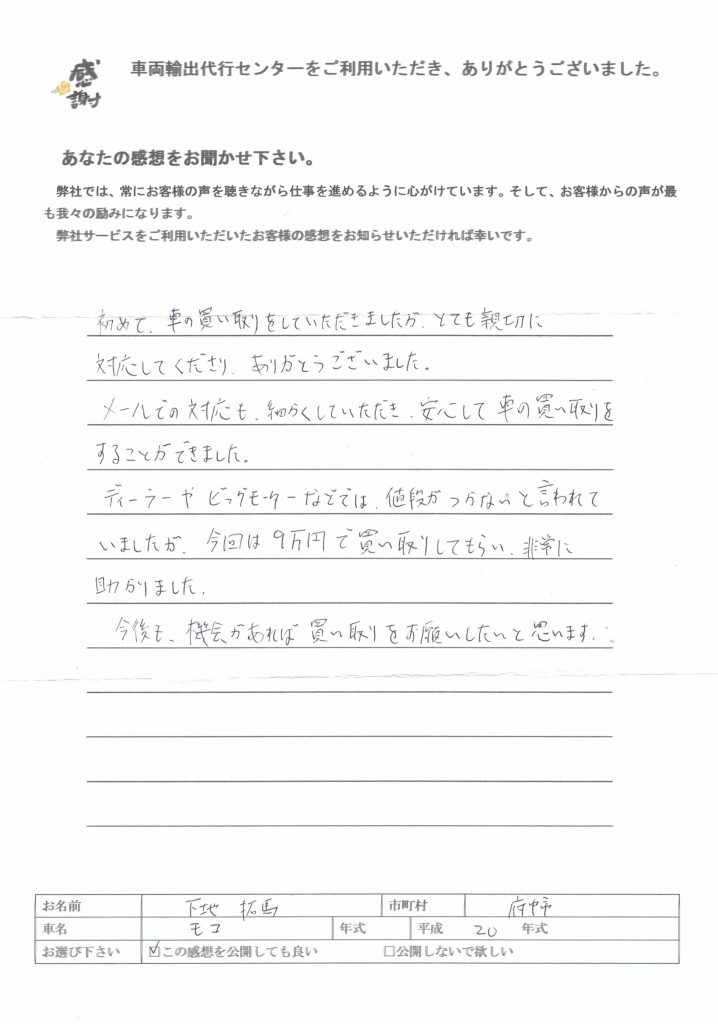 感謝
車両輸出代行センターをご利用いただき、ありがとうございました。
あなたの感想をお聞かせ下さい。
弊社では、常にお客様の声を聴きながら仕事を進めるように心がけています。そして、お客様からの声が最
も我々の励みになります。
弊社サービスをご利用いただいたお客様の感想をお知らせいただければ幸いです。
初めて、車の買い取りをしていただきましたが、とても親切に
対応してくださり、ありがとうございました。
メールでの対応も、細かくしていただき、安心して車の買い取りを
することができました。
ディーラーやビッグモーターなどでは、値段がつかないと言われて
いましたが、今回は9万円で買い取りしてもらい、非常に
助かりました。
今後も、機会があれば買い取りをお願いしたいと思います。
お名前 下地 拓馬 市町村 府中市
車名 モコ 年式 平成 20 年式
お選び下さい ☑この感想を公開しても良い □公開しないで欲しい